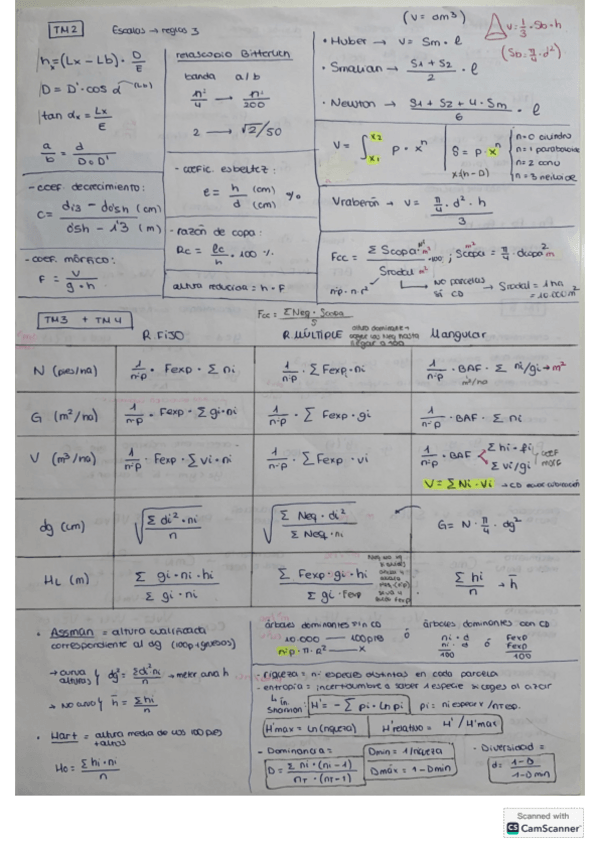 TM2
Escalas → reglas 3
hx = (Lx - Lb) · D/E
D = D' · cos α
tan αx = Lx/E
a/b = d/(D ó D')
- coef. decrecimiento:
C = (d1'3 - d0'5h (cm)) / (0'5h - 1'3 (m))
- coef. mórfico:
F = V/(g · h)
relascopio Bitterlich
banda a/b
ni/4 → ni/200
2 → √2/50
- coefic. esbeltez:
e = h (cm) / d (cm) %
- razón de copa:
Rc = lc/h · 100 %
altura reducida = h · F
(v = dm³)
v = 1/3 · Sb · h
(Sb = π/4 · d²)
• Huber → V = Sm · l
• Smalian → (S1 + S2)/2 · l
• Newton → (S1 + S2 + 4 · Sm)/6 · l
V = ∫ x1 x2 p · xⁿ
S = p · xⁿ
x(h-D)
n=0 cilindro
n=1 paraboloide
n=2 cono
n=3 neiloide
V = (π/4 · d² · h)/3
Fcc = Σ Scopa m² / Srodal m² · 100 ; Scopa = π/4 · dcopa² m²
n·p · π · r²
no parcelas si CD → Srodal = 1 ha = 10.000 m²
TM3 + TM4
Fcc = Σ Neq · Scopa / S
R. FIJO
R MÚLTIPLE
M angular
N (pies/ha)
1/n·p · Fexp · Σ ni
1/n·p · Σ Fexp · ni
1/n·p · BAF · Σ ni/gi → m²
m²/ha
G (m²/ha)
1/n·p · Fexp · Σ gi · ni
1/n·p · Σ Fexp · gi
1/n·p · BAF · Σ ni
V (m³/ha)
1/n·p · Fexp · Σ vi · ni
1/n·p · Σ Fexp · vi
1/n·p · BAF < Σ hi · fi coef morf
Σ vi/gi
V = Σ Ni · Vi → CD
dg (cm)
√(Σ di² · ni / n)
√(Σ Neq · di² / Σ Neq · ni)
G = N · π/4 · dg²
HL (m)
Σ gi · ni · hi / Σ gi · ni
Σ Fexp · gi · hi / Σ gi · Fexp
Σ hi / n → h̄
• Assman = altura cualificada
correspondiente al dg (100p+gruesos)
→ curva alturas } dg² = Σ di² ni / n → meter ana h
→ no } h̄ = Σ hi / n
• Hart = altura media de los 100 pies
+ altos
Ho = Σ hi · ni / n
árboles dominantes sin CD
10.000 — 100 pies
n·p · π · R² — x
ó
árboles dominantes con CD
ni · d / 100 ó Fexp / 100
- riqueza = nº especies distintas en cada parcela
- entropía = incertidumbre a saber 1 especie si coges al azar
↳ ín. Shannon: H' = - Σ pi · Ln pi pi = ni especie / n Tesp.
H'max = Ln (riqueza)
H'relativo = H' / H'max
- Dominancia =
D = Σ ni · (ni - 1) / nT · (nT - 1)
Dmin = 1/riqueza
Dmáx = 1 - Dmin
- Diversidad =
d = 1-D / 1-Dmin
Scanned with
CS CamScanner